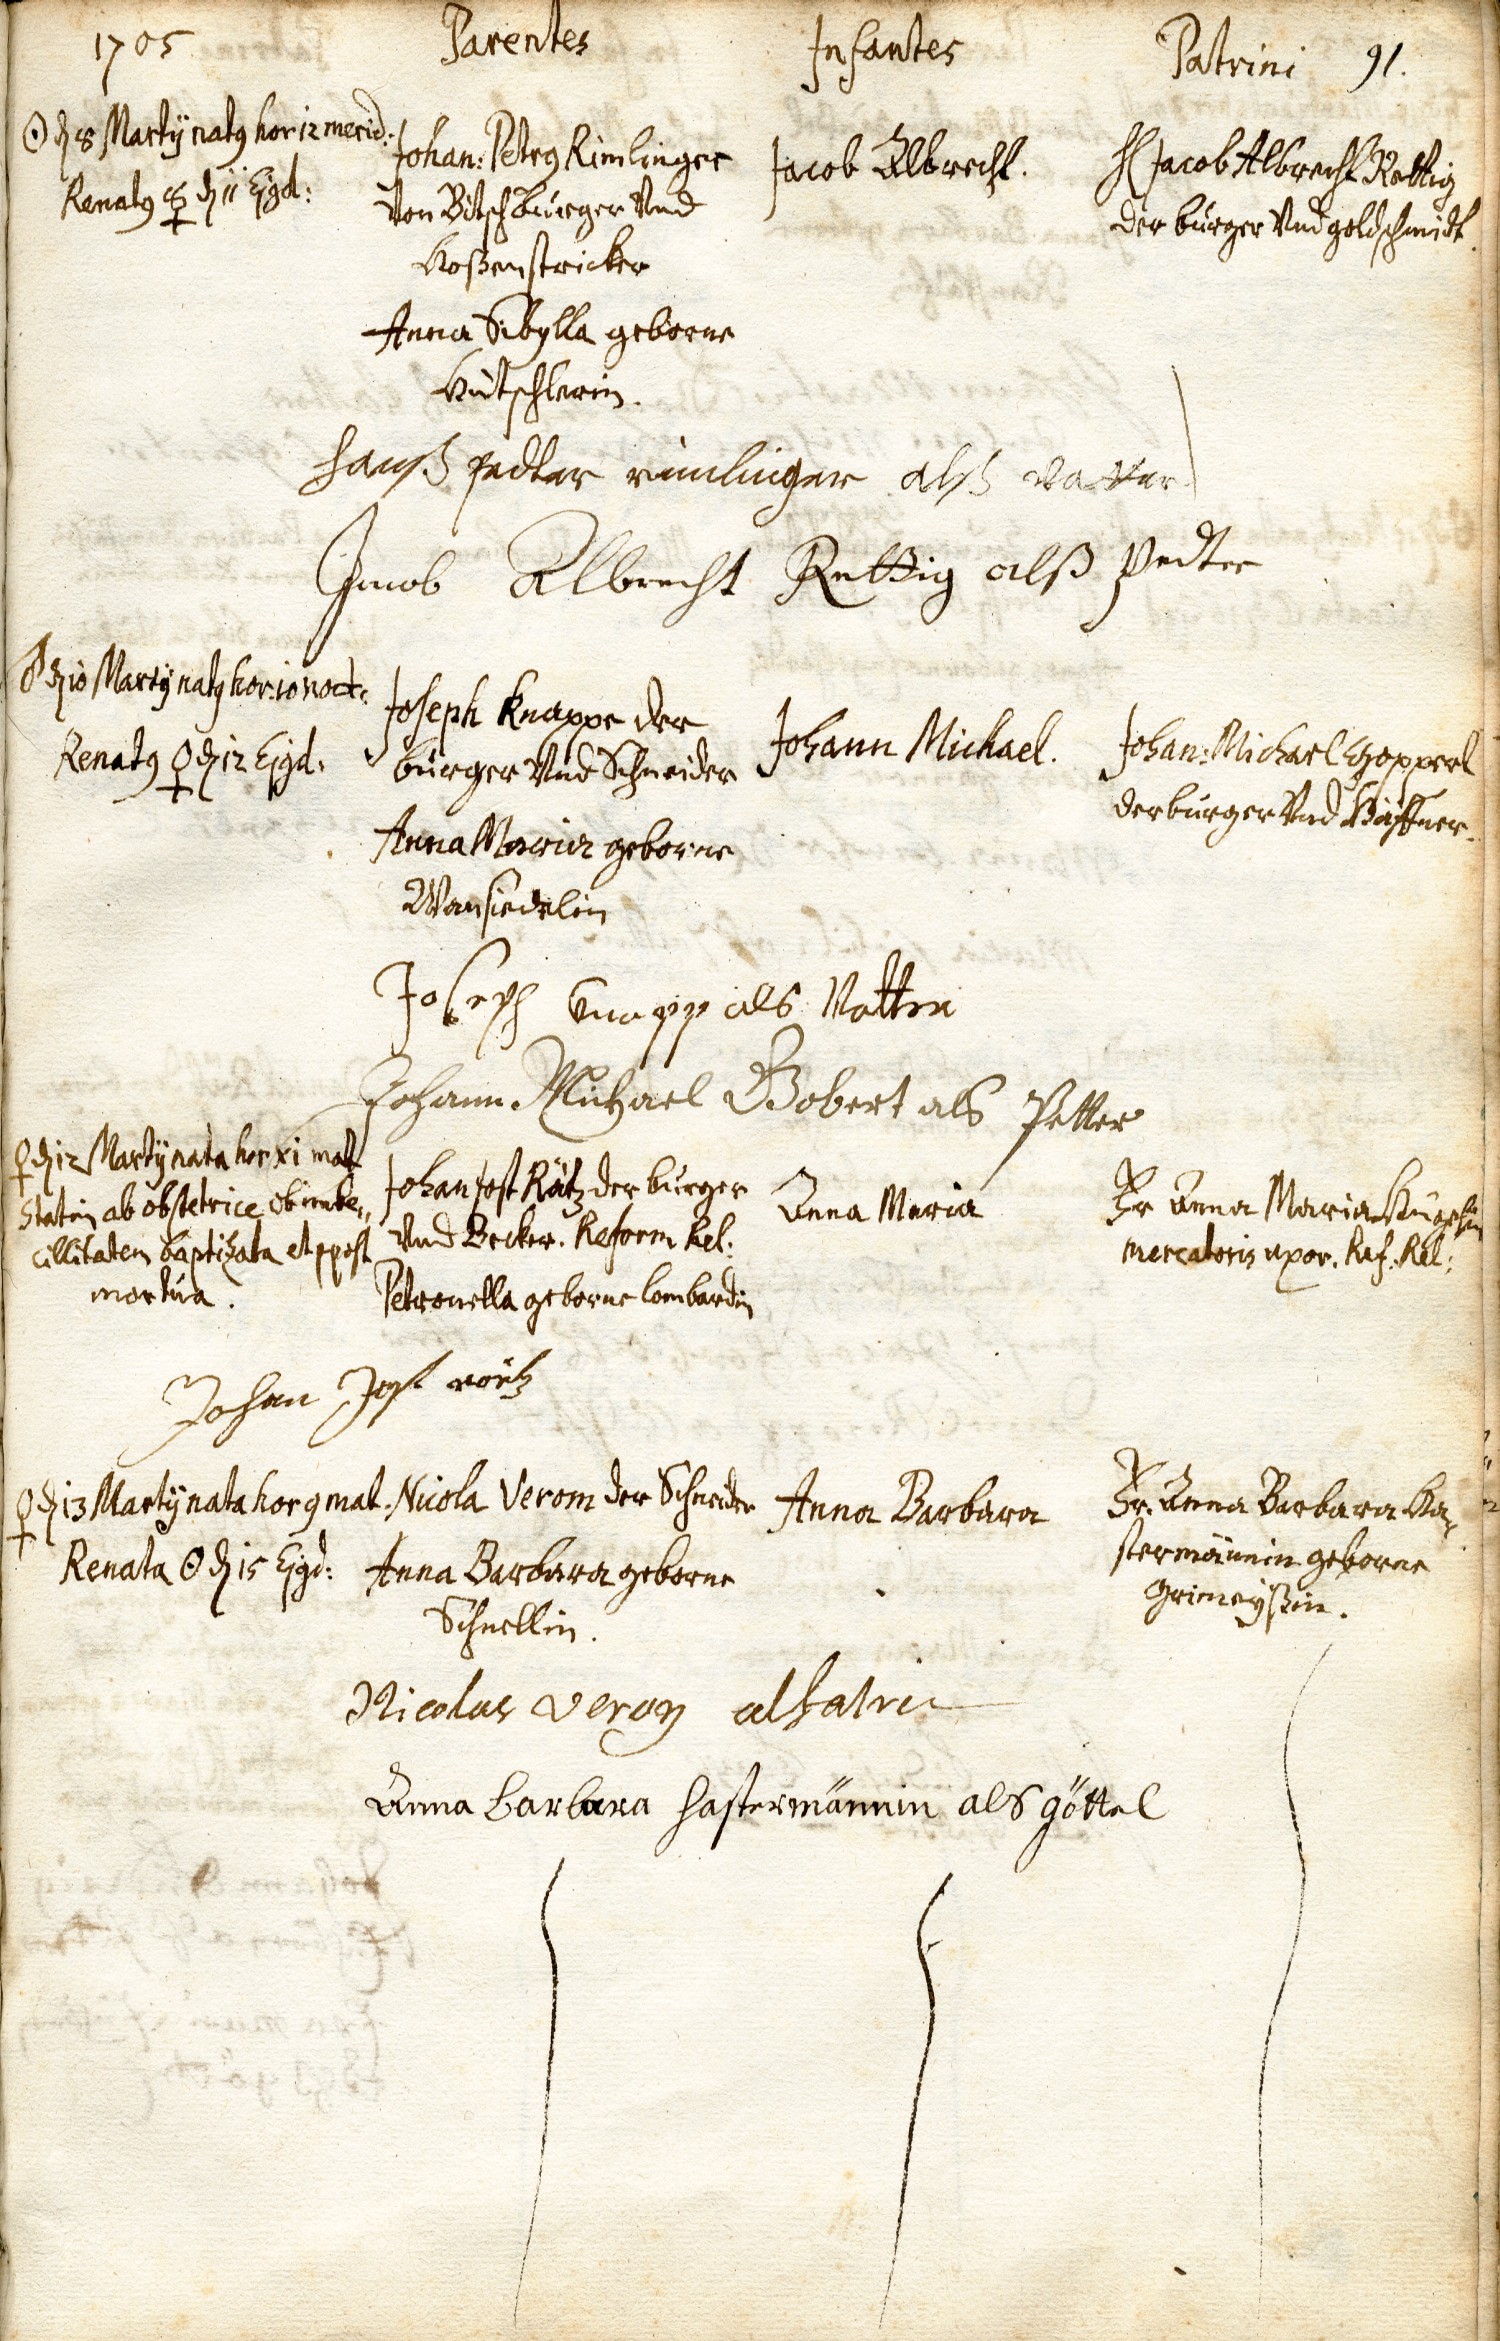 1705 Parentes Infantes Patrini 91.
☉ d 8 Martÿ natꝫ hor 12 merid:
Renatꝫ ☿ d 11 Ejsd:
Johan: Petrꝫ Rimlinger
Von Bitsch burger Vnd
Hoßenstricker
Anna Sibylla geborne
Hutschlerin.
Jacob Albrecht.
H Jacob Albrecht Rettig
der burger Vnd goldschmidt.
Hanß pedter rimlinger alß vatter
Jacob Albrecht Rettig alß pedter
♂ d 10 Martÿ natꝫ hor: 10 noct:
Renatꝫ d 12 Ejsd:
Joseph Knappe der
burger Vnd Schneider
Anna Maria geborne
Wansiedelin
Johann Michael.
Johan: Michael
der burger Vnd Häffner.
Joseph Knapp als Vatter
Johann Michael Gobert als Petter
d 12 Martÿ nata hor xi mat
statim ab obstetrice ob imbe„
cillitatem baptizata et post
mortua.
Johan Jost Rätz der burger
Vnd Becker. Reform Rel:
Petronella geborne Lombardin
Anna Maria
Fr Anna Maria
mercatoris uxor. Ref. Rel:
Johan Jost rätz
♀ d 13 Martÿ nata hor 9 mat.
Renata ☉ d 15 Ejsd:
Nicola Verom der Schneider
Anna Barbara geborne
Schnellin.
Anna Barbara
Fr. Anna Barbara Ha„
stermännin geborne
Grimeyßin.
Nicolas veron
Anna barbara hastermännin als göttel